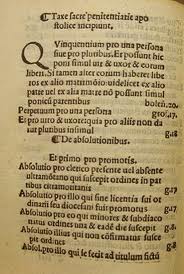 ¶ Taxe sacre penitentiarie apo
stolice incipiunt.
Quinquentium pro una persona
sue pro pluribus. Et possunt hic
poni simul uir & uxor & eorum
liberi. Si tantum alter eorum haberet liber
os ex alio matrimonio videlicet ex alio
patre uel ex alia matre nō possunt simul
poni cum parentibus
Perpetuum pro una persona g.17.
Et pro uiro & uxore
tur pluribus insimul
¶ De absolutionibus.
Et primo pro promotis.
Absolutio pro clerico presente uel absente
ultramontano qui suscepit ordines in par
tibus citramontanis
Absolutio pro illo qui sine licentia sui or
dinarii seu diocesani fuit promotus
Absolutio eius qui minores & subdiaco
natus una & eadē die suscepit
Absolutio illius qui non confirmatus susce
pit ordines
Absol. pro illo qui se fecit ad titulum fictū